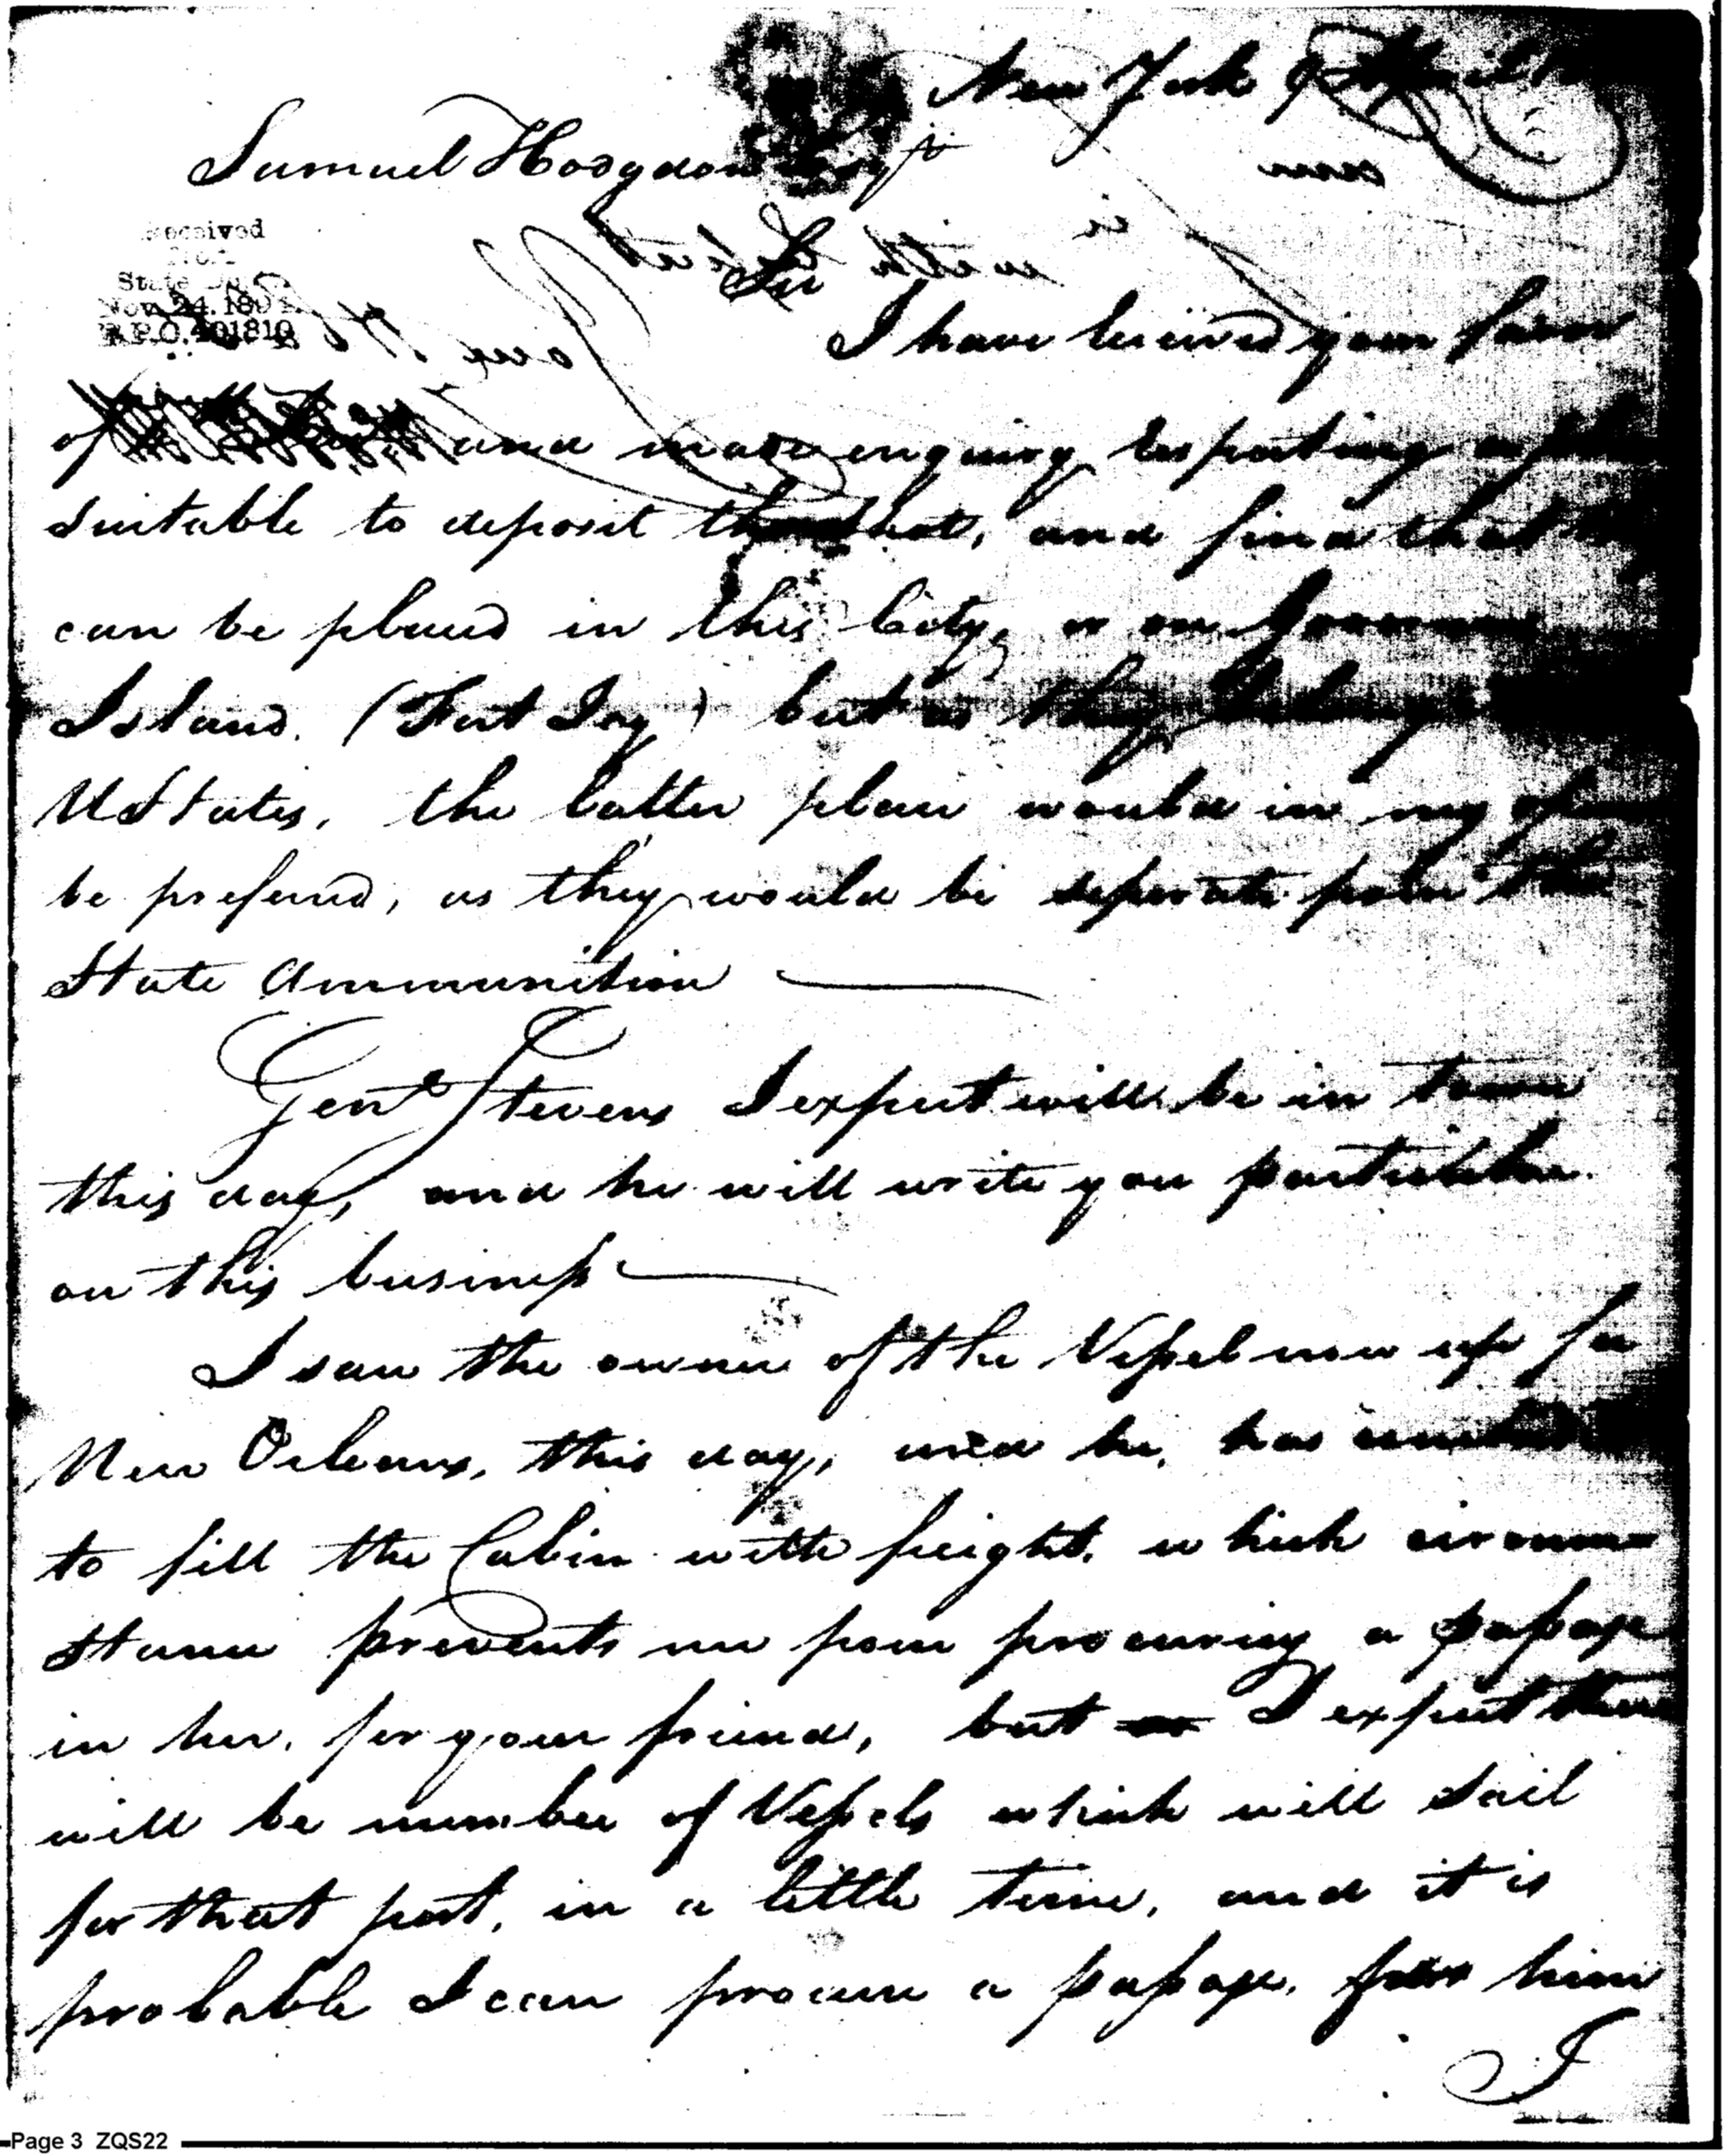 New York 9 April
Samuel Hodgdon Esqr
Received
State
Nov. 24. 1891
R.P.O. 401810
Sir
I have received your favor
of and made enquiry respecting a
suitable to deposit the shot, and find that
can be placed in this City, or on Governors
Island. (Fort Jay) but as they belong
UStates, the latter place would in my
be preferred, as they would be seperate from the
State Ammunition
Genl Stevens I expect will be in town
this day, and he will write you particular
on this business
I saw the owner of the Vessel now up for
New Orleans, this day, and he, has
to fill the Cabin with freight, which circum
stance prevents me from procuring a passage
in her, for your friend, but I expect there
will be number of Vessels which will sail
for that port, in a little time, and it is
probable I can procure a passage, for him
I
Page 3 ZQS22